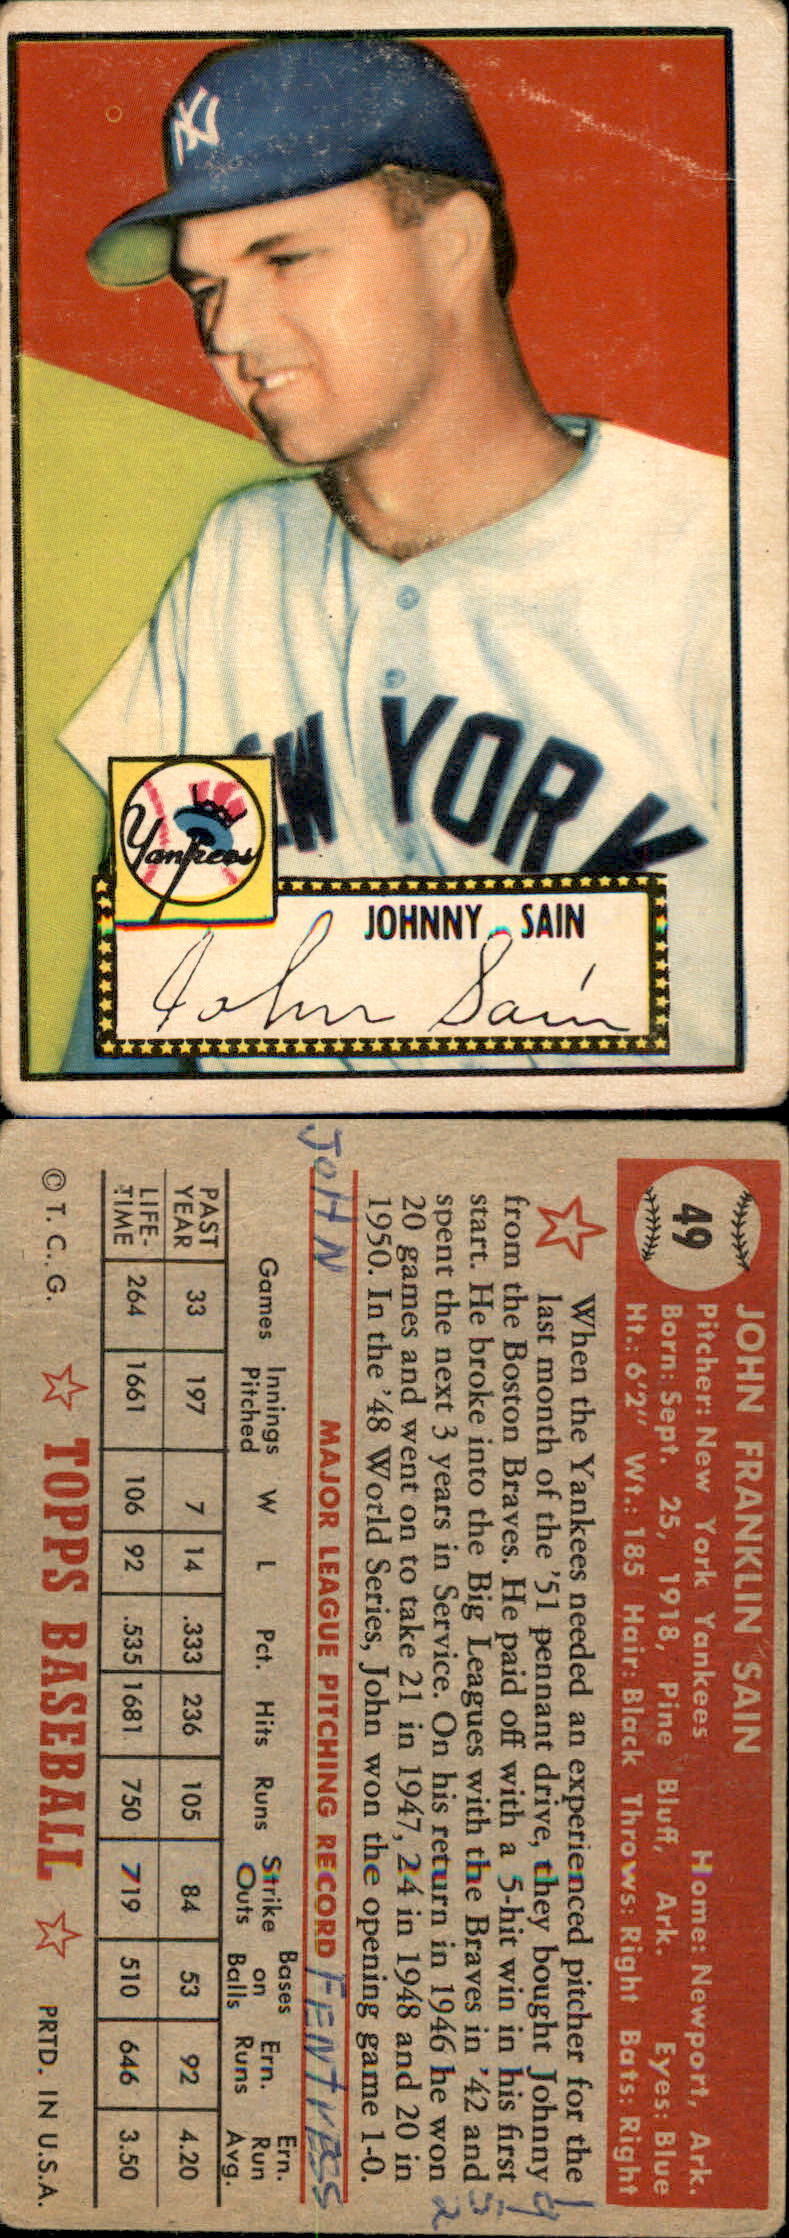 NY
NEW YORK
Yankees
JOHNNY SAIN
John Sain
49
JOHN FRANKLIN SAIN
Pitcher: New York Yankees Home: Newport, Ark.
Born: Sept. 25, 1918, Pine Bluff, Ark. Eyes: Blue
Ht.: 6'2" Wt.: 185 Hair: Black Throws: Right Bats: Right
When the Yankees needed an experienced pitcher for the
last month of the '51 pennant drive, they bought Johnny
from the Boston Braves. He paid off with a 5-hit win in his first
start. He broke into the Big Leagues with the Braves in '42 and
spent the next 3 years in Service. On his return in 1946 he won
20 games and went on to take 21 in 1947, 24 in 1948 and 20 in
1950. In the '48 World Series, John won the opening game 1-0.
1952
JOHN FENTRESS
MAJOR LEAGUE PITCHING RECORD
Games Innings Pitched W L Pct. Hits Runs Strike Outs Bases on Balls Ern. Runs Ern. Run Avg.
PAST YEAR 33 197 7 14 .333 236 105 84 53 92 4.20
LIFE-TIME 264 1661 106 92 .535 1681 750 719 510 646 3.50
© T. C. G. TOPPS BASEBALL PRTD. IN U.S.A.